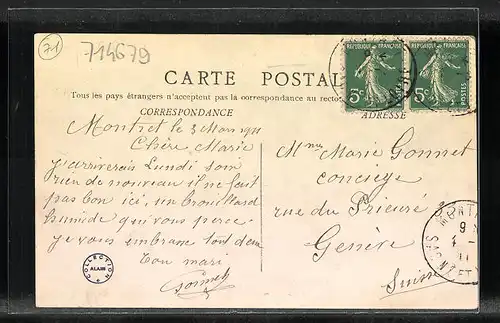 71
714679
REPUBLIQUE FRANÇAISE
5c POSTES
REPUBLIQUE FRANÇAISE
5c POSTES
CARTE POSTALE
Tous les pays étrangers n'acceptent pas la correspondance au recto
CORRESPONDANCE
ADRESSE
Montret le 3 Mars 1911
Chère Marie
j'arriverais Lundi soir
rien de nouveau il ne fait
pas bon ici, un brouillard
humide qui vous perce
je vous embrasse tout deux
Ton mari
Gonnet
Mme Marie Gonnet
concierge
rue du Prieuré
Genève
Suisse
COLLECTION
ALAIN